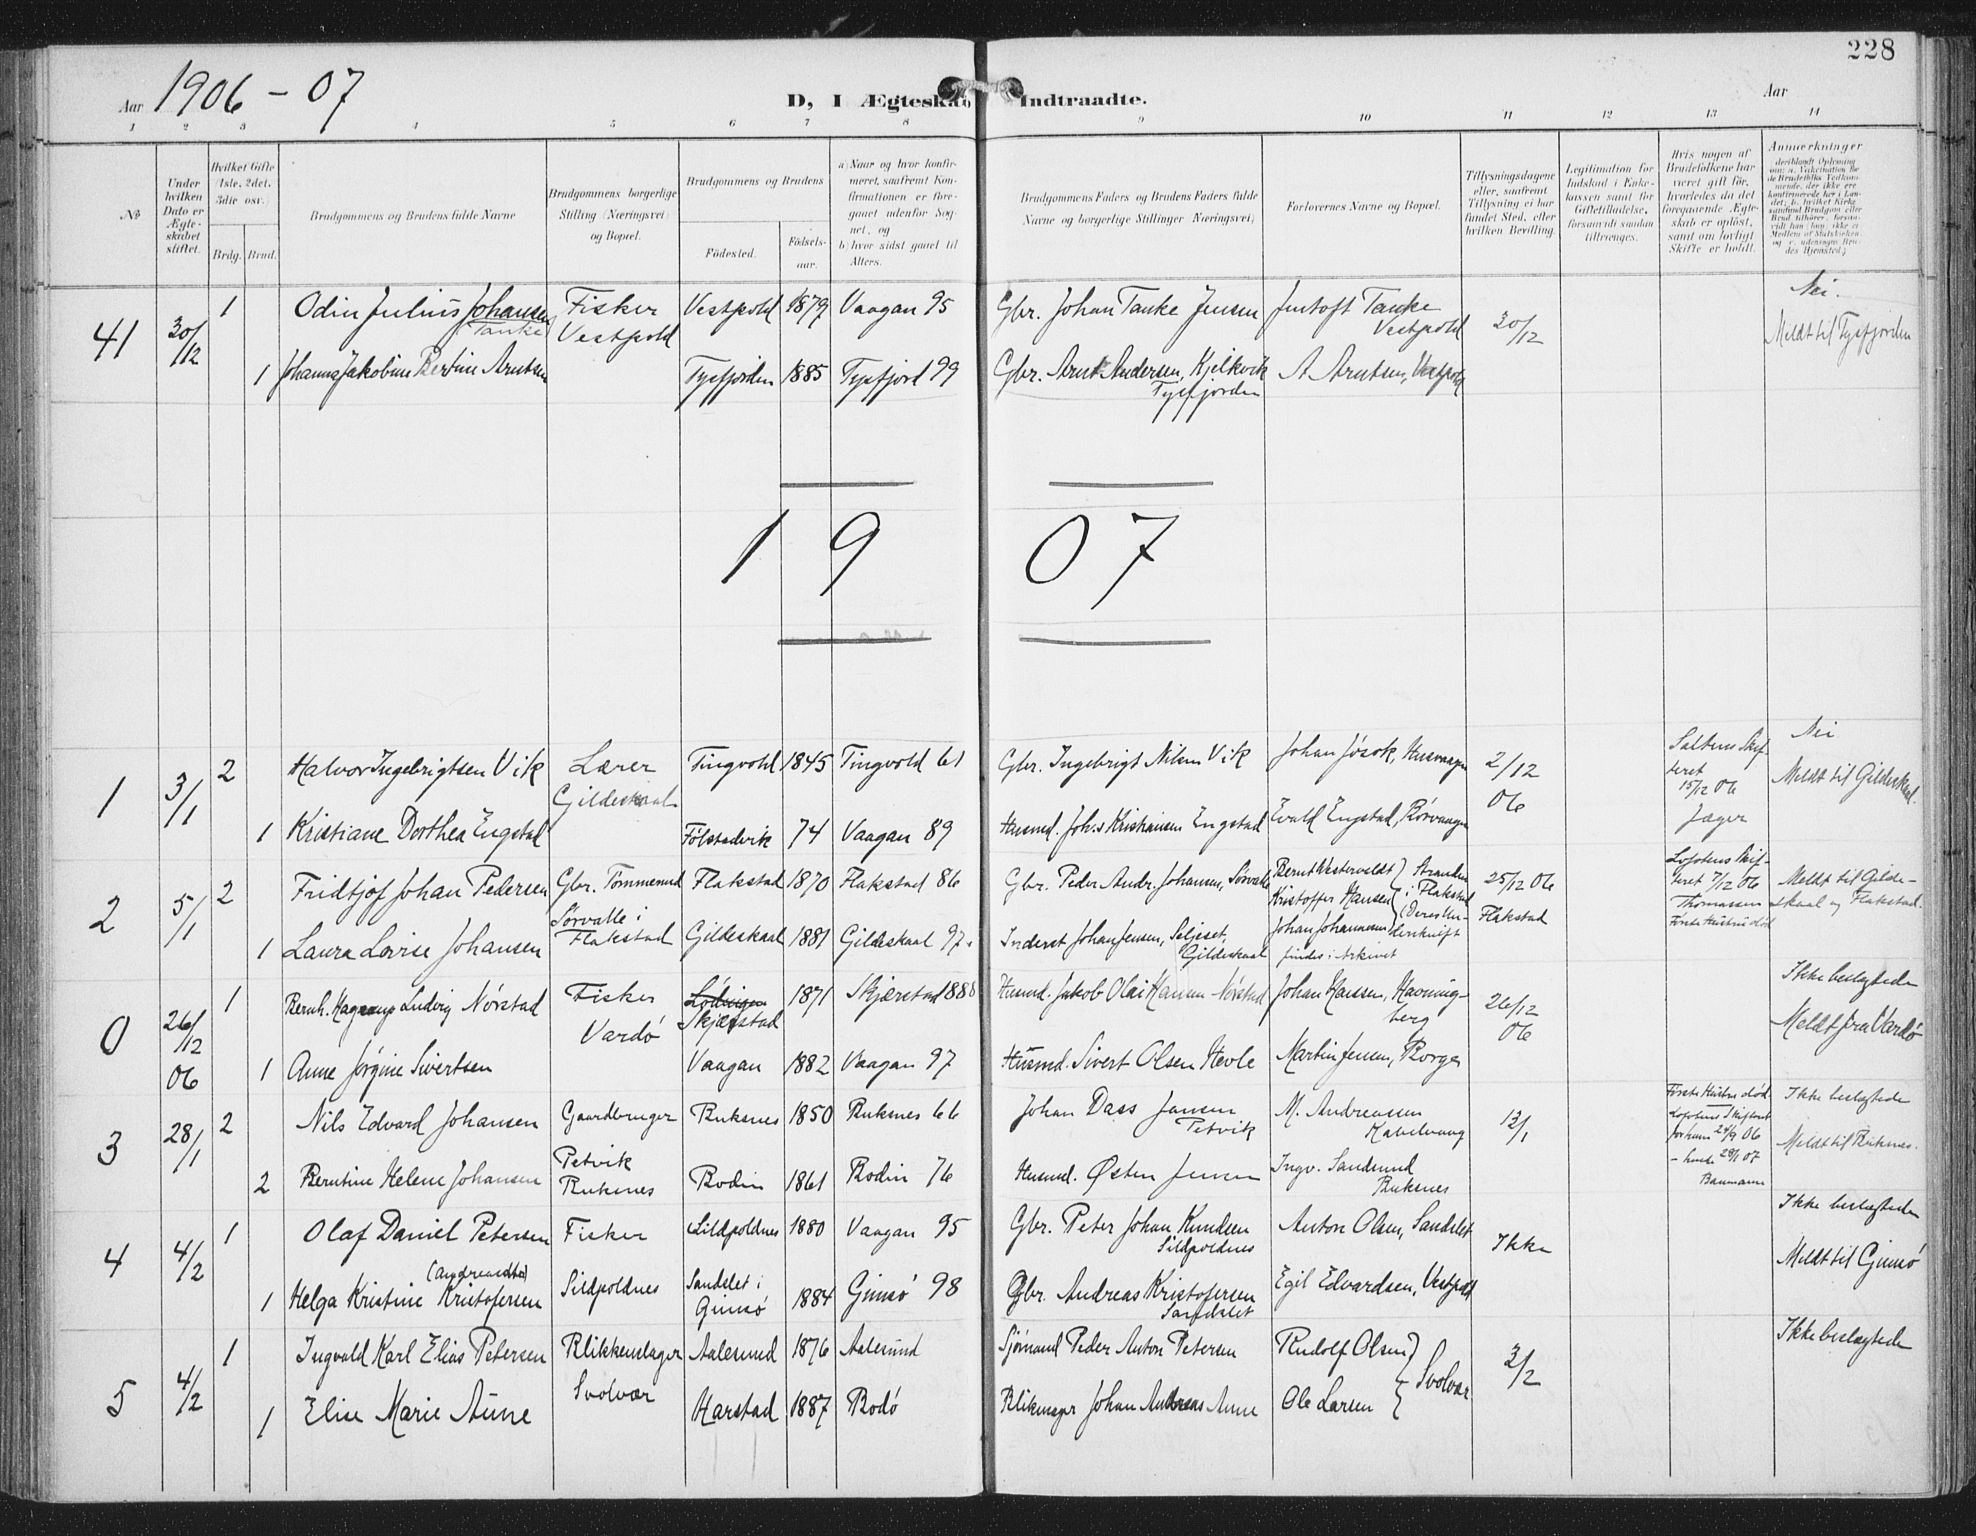 228
Aar 1906 - 07
D, I Ægteskab Indtraadte.
Aar
1 2 3 4 5 6 7 8 9 10 11 12 13 14
№
Under hvilken Dato er Ægteskabet stiftet.
Hvilket Gifte (1ste, 2det, 3die osv.)
Brdg. Brud.
Brudgommens og Brudens fulde Navne
Brudgommens borgerlige Stilling (Næringsvei) og Bopæl.
Brudgommens og Brudens
Fødested.
Fødsels-aar.
a) Naar og hvor konfirmeret, saafremt Konfirmationen er foregaaet udenfor Sognet, og
b) hvor sidst gaaet til Alters.
Brudgommens Faders og Brudens Faders fulde Navne og borgerlige Stillinger (Næringsvei)
Forlovernes Navne og Bopæl.
Tillysningsdagene eller, saafremt Tillysning ei har fundet Sted, efter hvilken Bevilling.
Legitimation for Indskud i Enkekassen samt for Giftetilladelse, forsaavidt saadan tiltrænges.
Hvis nogen af Brudefolkene har været gift før, hvorledes da det foregaaende Ægteskab er opløst, samt om lovligt Skifte er holdt.
Anmærkninger
41 30/12 1 Odin Julius Johansen Fisker Vestpold 1879 Vaagan 95 Gbr. Johan Tanke Jensen Jentoft Tanke 30/12 Nei.
Tanke Vestpold Vestpold Meldt til Tysfjorden
1 Johanna Jakobine Bertine Arntsen Tysfjorden 1885 Tysfjord 99 Gbr. Arnt Andersen, Kjelkvik A Arntsen, Vestpold
Tysfjorden
1907
1 3/1 2 Halvor Ingebrigtsen Vik Lærer Tingvold 1845 Tingvold 61 Gbr. Ingebrigt Nilsen Vik Johan Jøsok, Husvaagen 2/12 06 Saltens Skifteret 15/12 06 Jæger Nei
Gildeskaal Meldt til Gildeskaal.
1 Kristiane Dorthea Engstad Følstadvik 74 Vaagan 89 Husmd. Johs Kristiansen Engstad Evald Engstad, Rørvaagen
2 5/1 2 Fridtjof Johan Pedersen Gbr. Tømmermd Flakstad 1870 Flakstad 86 Gbr. Peder Andr. Johansen, Sørvalle Bernt Westervoldt 25/12 06 Lofotens Skifteret 7/12 06 Meldt til Gilde-
Sørvalle i Kristoffer Hansen i Flakstad Flakstad Thomassen skaal og Flakstad.
1 Laura Lovise Johansen Flakstad Gildeskaal 1881 Gildeskaal 97. Inderst Johan Jensen, Seljeset, Johan Johannesen Første Hustru død
Gildeskaal findes i Arkivet
0 26/12 06 1 Bernh. Hagerup Ludvig Nørstad Fisker Lødingen 1871 Skjærstad 1888 Husmd. Jakob Olai Hansen Nørstad Johan Hansen, Havning- 26/12 06 Ikke beslægtede
Vardø Skjærstad berg Meldt fra Vardø
1 Anne Jørgine Sivertsen Vaagan 1882 Vaagan 97 Husmd. Sivert Olsen Hevle Martin Jensen, Borge
3 28/1 2 Nils Edvard Johansen Gaardbruger Buksnes 1850 Buksnes 66 Johan Dass Jansen M. Andreassen 13/1 Første Hustru død Ikke beslægtede
Petvik Kabelvaag Lofotens Skifteret
Petvik forhans 24/9 06 Meldt til Buksnes.
2 Berntine Helene Johansen Buksnes Bodin 1861 Bodin 76 Husmd. Østen Jensen Ingv. Sandsund - hende 28/1 07
Buksnes Baumann
4 4/2 1 Olaf Daniel Petersen Fisker Sildpoldnes 1880 Vaagan 95 Gbr. Peter Johan Knudsen Anton Olsen, Sandslet Ikke Ikke beslægtede
Sildpoldnes
(Andreasdtr) Meldt til Gimsø
1 Helga Kristine Kristofersen Sildpoldnes Sandslet i Gimsø 1884 Gimsø 98 Gbr. Andreas Kristofersen Egil Edvardsen, Vestpold
Sandslet
5 4/2 1 Ingvald Karl Elias Petersen Blikkenslager Aalesund 1876 Aalesund Sjømand Peder Anton Petersen Rudolf Olsen 3/2 Ikke beslægtede
Svolvær Svolvær
1 Elise Marie Aune Harstad 1887 Bodø Blikmager Johan Andreas Aune Ole Larsen